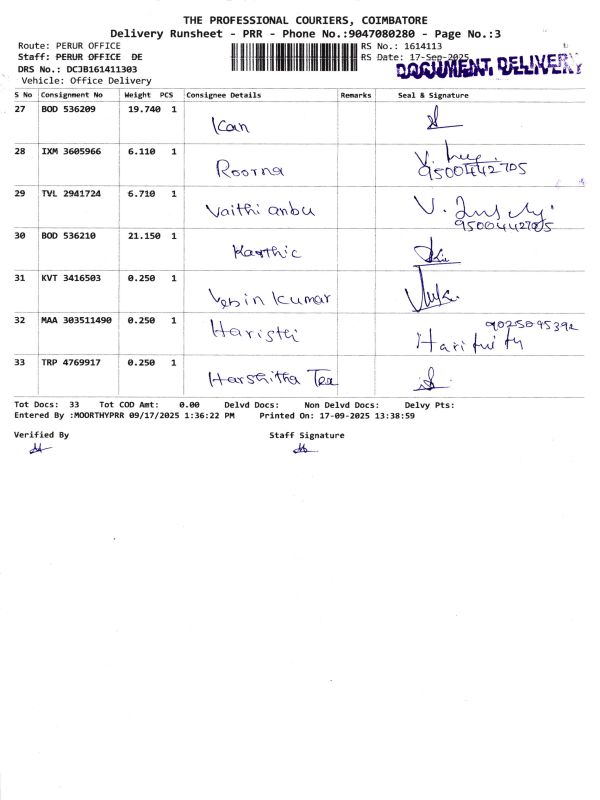 THE PROFESSIONAL COURIERS, COIMBATORE
Delivery Runsheet - PRR - Phone No.:9047080280 - Page No.:3
Route: PERUR OFFICE RS No.: 1614113
Staff: PERUR OFFICE DE RS Date: 17-Sep-2025
DRS No.: DCJB161411303 DOCUMENT DELIVERY
Vehicle: Office Delivery
S No Consignment No Weight PCS Consignee Details Remarks Seal & Signature
27 BOD 536209 19.740 1
Ican
28 IXM 3605966 6.110 1
Roorna 9500442705
29 TVL 2941724 6.710 1
Vaithi anbu 9500442705
30 BOD 536210 21.150 1
Karthic
31 KVT 3416503 0.250 1
Vebin Kumar
32 MAA 303511490 0.250 1
Haristi
33 TRP 4769917 0.250 1
Harshitha Tex
Tot Docs: 33 Tot COD Amt: 0.00 Delvd Docs: Non Delvd Docs: Delvy Pts:
Entered By :MOORTHYPRR 09/17/2025 1:36:22 PM Printed On: 17-09-2025 13:38:59
Verified By Staff Signature